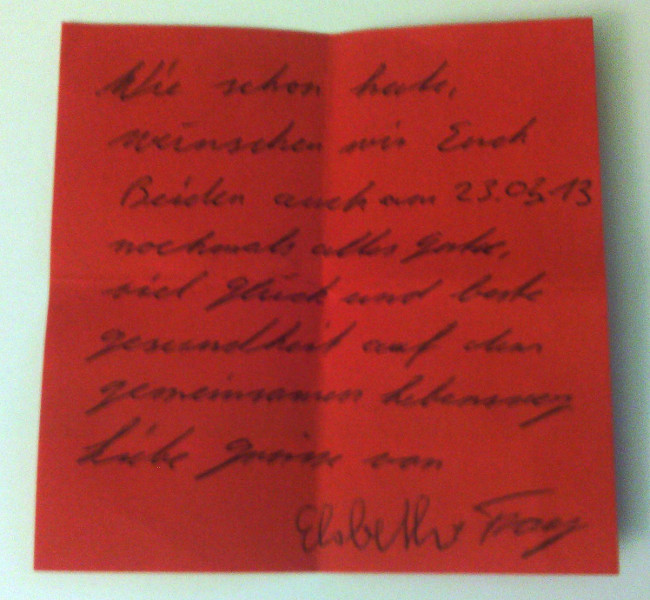 Wie schon heute,
wünschen wir Euch
Beiden auch am 23.03.13
nochmals alles gute,
viel glück und beste
gesundheit auf dem
gemeinsamen lebensweg
Liebe grüsse von
Elsbeth